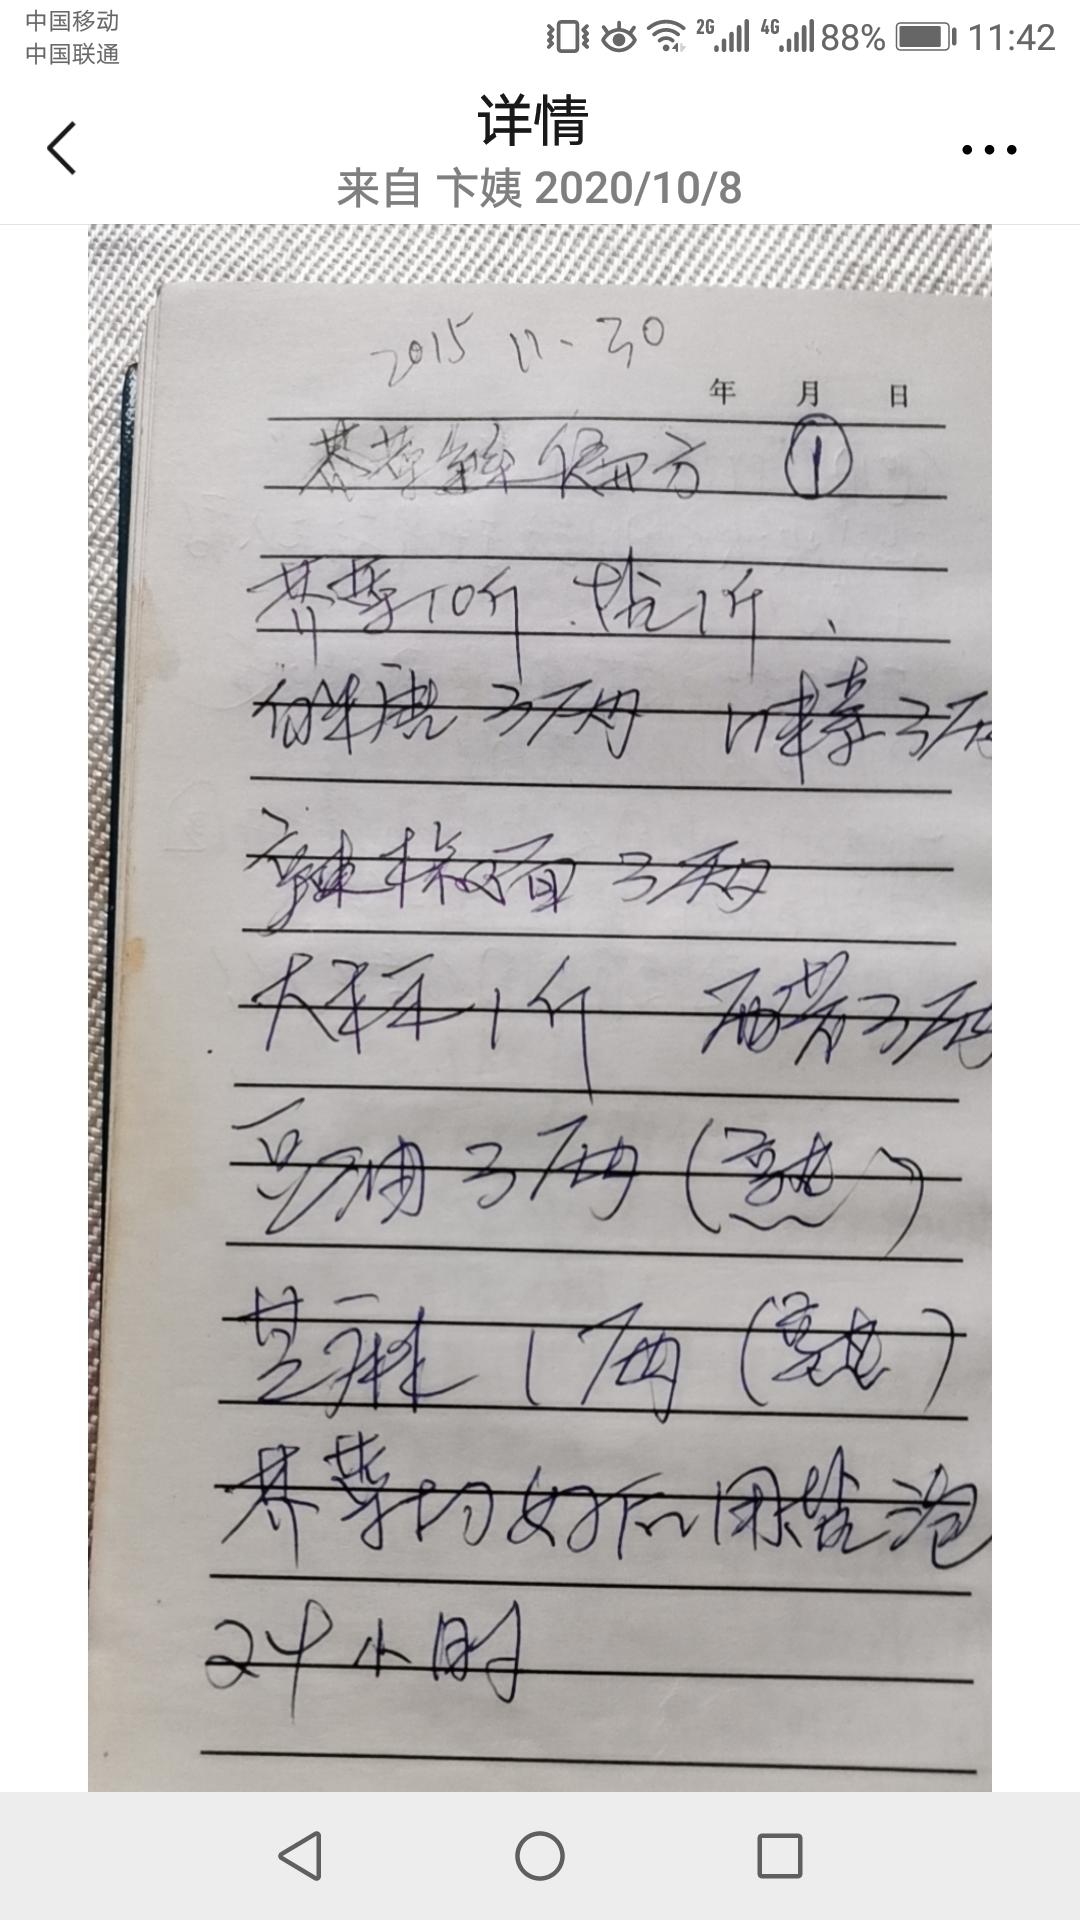 中国移动
中国联通
2G 4G 88% 11:42
详情
来自 卞姨 2020/10/8
2015 11-30
年 月 日
芥菜丝偏方 ①
10斤 盐1斤、
白糖3两 味素3两
辣椒面3两
大 1斤 3两
豆油3两(熟)
芝麻1两(熟)
切好后用盐泡
24小时